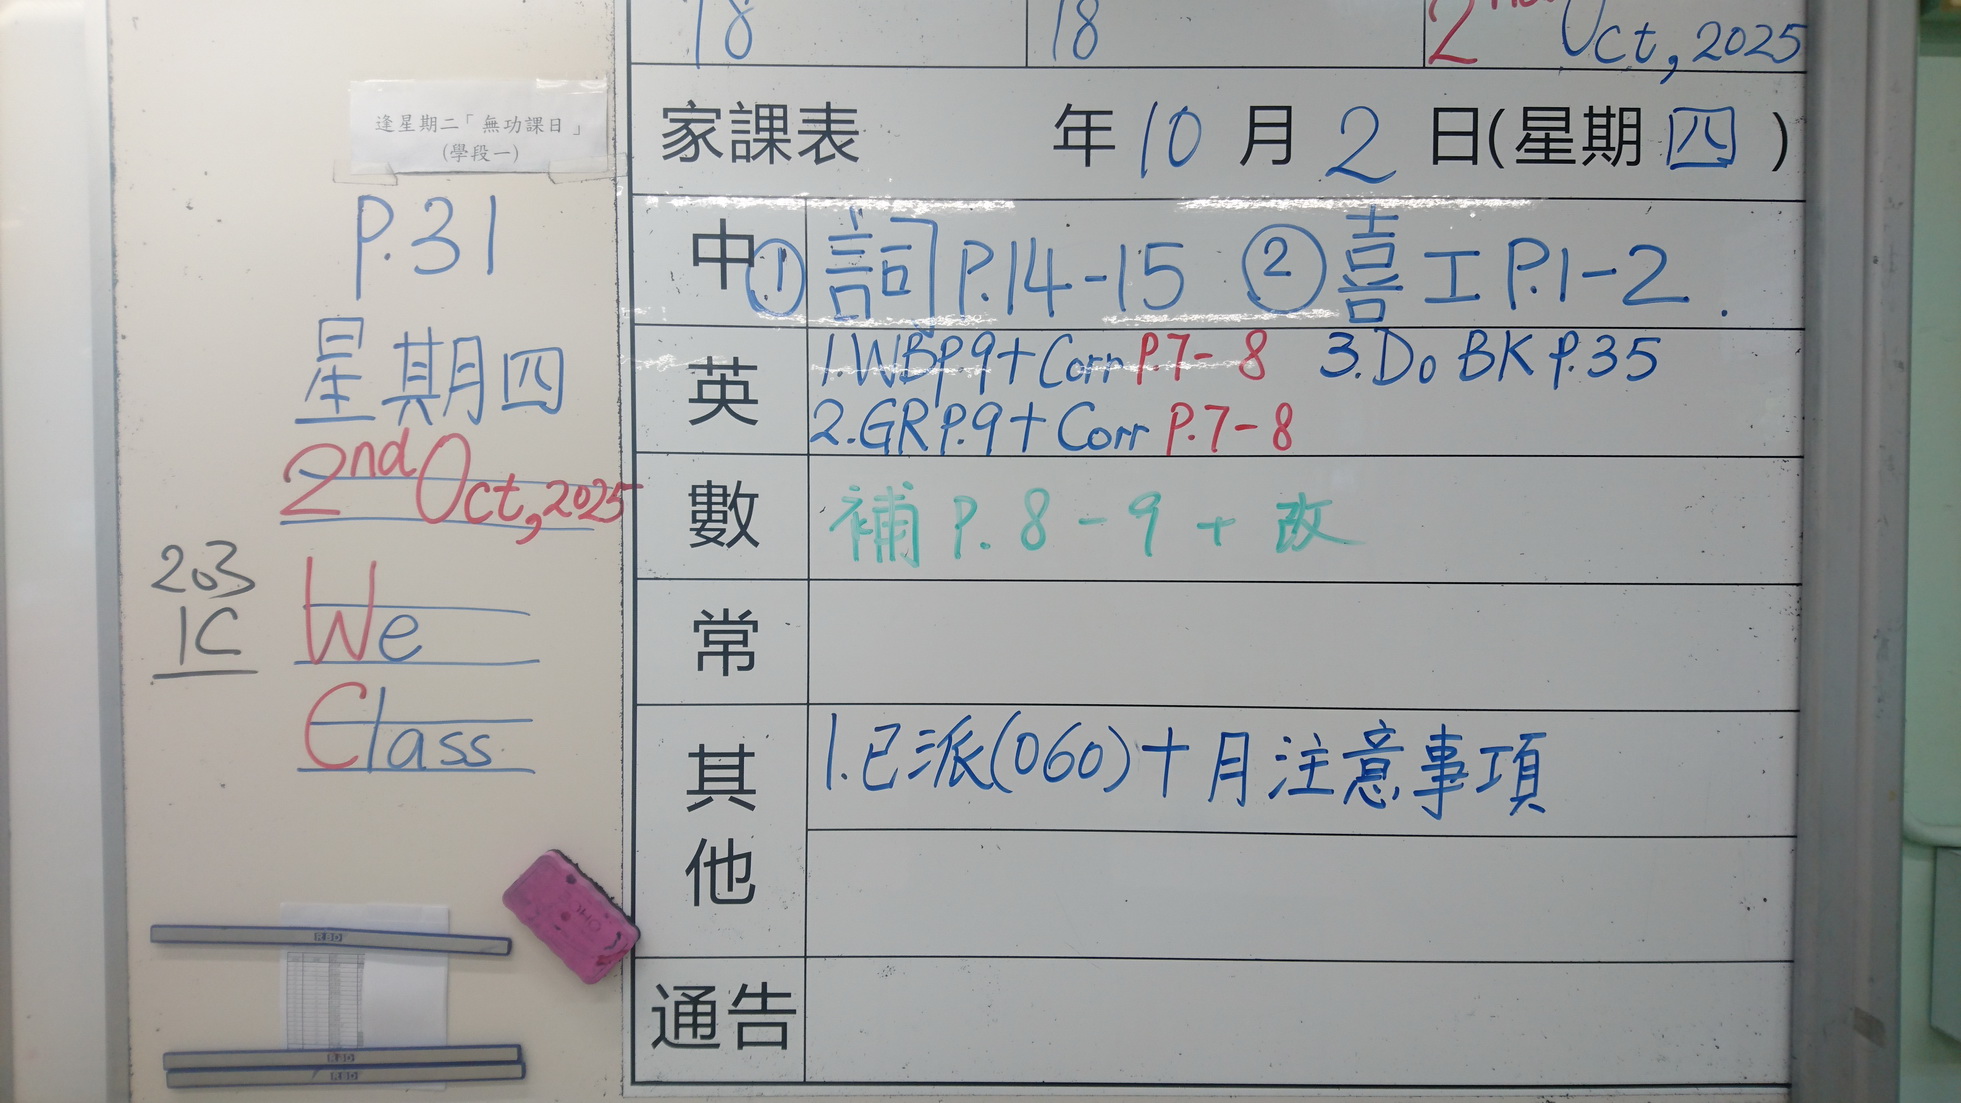 18
18
2nd Oct, 2025
逢星期二「無功課日」
(學段一)
P.31
星期四
2nd Oct, 2025
203
1C
We
Class
家課表 年 10 月 2 日(星期 四 )
中 ① 詞 P.14-15 ② 喜工 P.1-2.
英 1.WB P.9 + Corr P.7-8 3.Do BK P.35
2.GR P.9 + Corr P.7-8
數 補 P.8-9 + 改
常
其他 1.已派(060)十月注意事項
通告
RBD
RBD
RBD